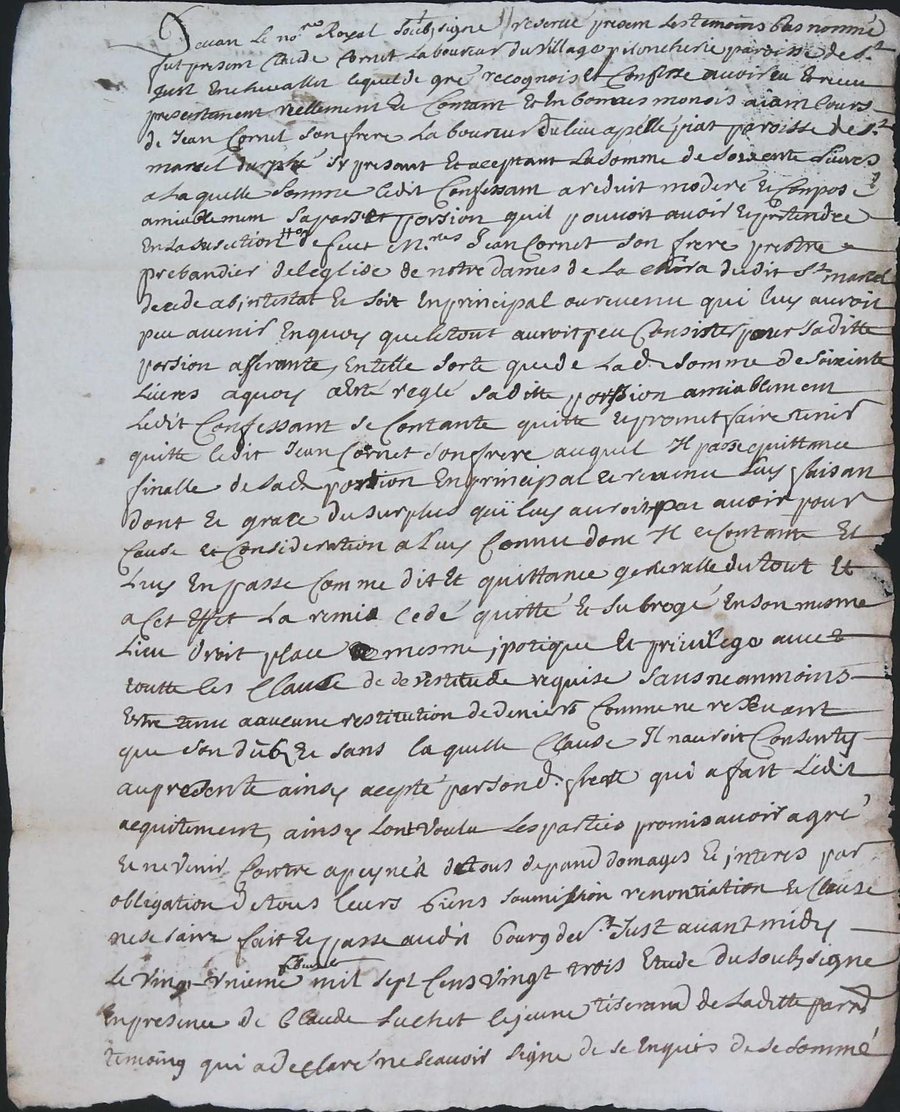 Devan le no.re Royal soubsigne reservé presen les temoins bas nommé
fut presen Claude Cornet laboureur du village peloncherie paroisse de s.t
Just en chevallet lequel de gré recognois et confesse avoir eu et receu
presentement reellement et contant et en bonnes monois aiam cours
de Jean Cornet son frere laboureur du lieu apellé piat paroisse de s.t
marsel durphé Icy presant et aceptant la somme de soixente livres
a laquelle somme ledit Confessam a reduit moderé et Compos
amiablemem sa part et porsion quil pouvoit avoir et pretendre
en la susection de feut m.res Jean Cornet son frere prestre
prebandier de leglise de notre dames de la chira dudit s.t marcel
decede abintestat et soit en principal ou revenu qui luy auroit
peu avenir en quoy que le tout auroit peu consister pour sa ditte
porsion aferante, en telle sorte que de la d. somme de soixente
livres a quoy a esté reglé sa ditte porsion amiablement
ledit Confessant se contante quitte et promet faire tenir
quitte ledit Jean Cornet son frere auquel Il passe quittance
finalle de sa d. portion en principal et revenu luy faisan
dont et grace du surplus qui luy auroit peu avoir pour
Cause et consideration a luy connu donc Il ce contante et
luy en passe comme dit et quittance generalle du tout et
a cet effet la remis cedé quitté et subrogé en son mesme
lieu droit place et mesme ipotique et privilege avec
toutte les Clause de de restitude requise sans neanmoins
estre tenu a aucune restitution de deniers comme ne resevant
que son dub et sans laquelle Clause Il nauroit consenty
au presente ainsy acepté par son d. frere qui a fait ledit
aquitement, ainsy lont voulu les parties promis avoir agré
et ne venir contre a peyne de tous depand domages et interes par
obligation de tous leurs biens soumission renontiation et clause
nesesaire fait et passe audit bourg de s.t Just avant midy
le vingt unieme mil sept cens vingt trois Etude du soubsigne
en presence de Claude luchet le jeune tiserand de laditte parr.
temoing qui a declaré ne scavoir signe de se enquis de se sommé